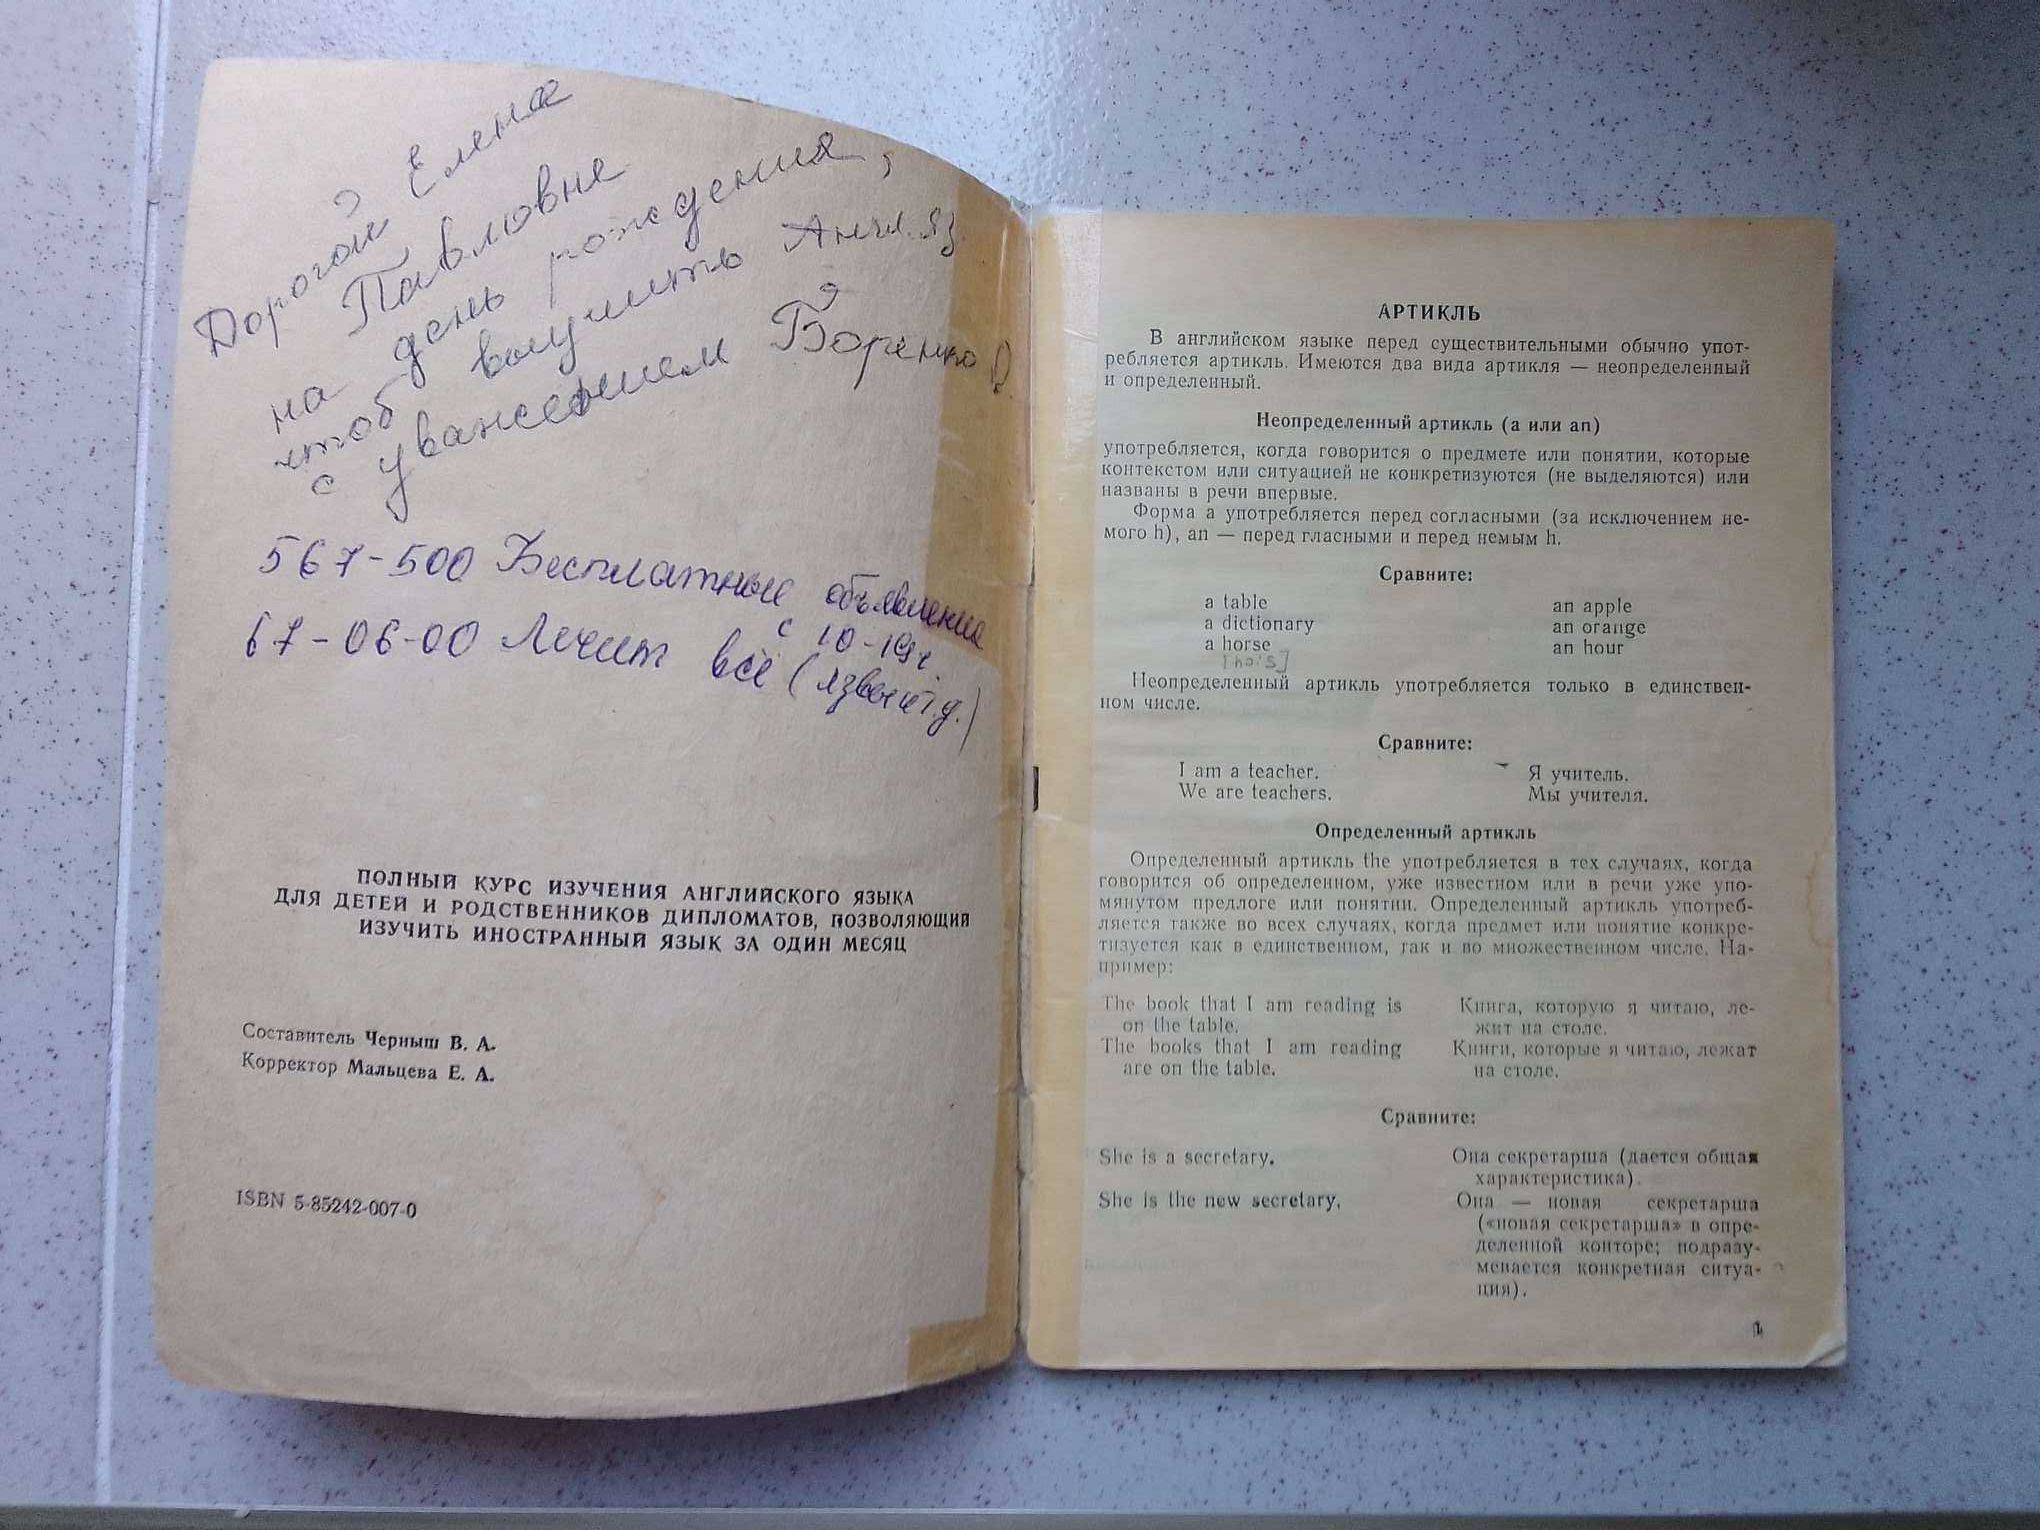 Дорогой Елене
Павловне
на день рождения,
чтоб выучить Англ. яз.
с уважением
567-500 Бесплатные объявления
с 10-19ч.
67-06-00 Лечит всё (язвы и т.д.)
ПОЛНЫЙ КУРС ИЗУЧЕНИЯ АНГЛИЙСКОГО ЯЗЫКА
ДЛЯ ДЕТЕЙ И РОДСТВЕННИКОВ ДИПЛОМАТОВ, ПОЗВОЛЯЮЩИЙ
ИЗУЧИТЬ ИНОСТРАННЫЙ ЯЗЫК ЗА ОДИН МЕСЯЦ
Составитель Черныш В. А.
Корректор Мальцева Е. А.
ISBN 5-85242-007-0
АРТИКЛЬ
В английском языке перед существительными обычно упот-
ребляется артикль. Имеются два вида артикля — неопределенный
и определенный.
Неопределенный артикль (a или an)
употребляется, когда говорится о предмете или понятии, которые
контекстом или ситуацией не конкретизуются (не выделяются) или
названы в речи впервые.
Форма a употребляется перед согласными (за исключением не-
мого h), an — перед гласными и перед немым h.
Сравните:
a table an apple
a dictionary an orange
a horse an hour
[ho:s]
Неопределенный артикль употребляется только в единствен-
ном числе.
Сравните:
I am a teacher. Я учитель.
We are teachers. Мы учителя.
Определенный артикль
Определенный артикль the употребляется в тех случаях, когда
говорится об определенном, уже известном или в речи уже упо-
мянутом предлоге или понятии. Определенный артикль употреб-
ляется также во всех случаях, когда предмет или понятие конкре-
тизуется как в единственном, так и во множественном числе. На-
пример:
The book that I am reading is Книга, которую я читаю, ле-
on the table. жит на столе.
The books that I am reading Книги, которые я читаю, лежат
are on the table. на столе.
Сравните:
She is a secretary. Она секретарша (дается общая
характеристика).
She is the new secretary. Она — новая секретарша
(«новая секретарша» в опре-
деленной конторе; подразу-
мевается конкретная ситуа-
ция).
1